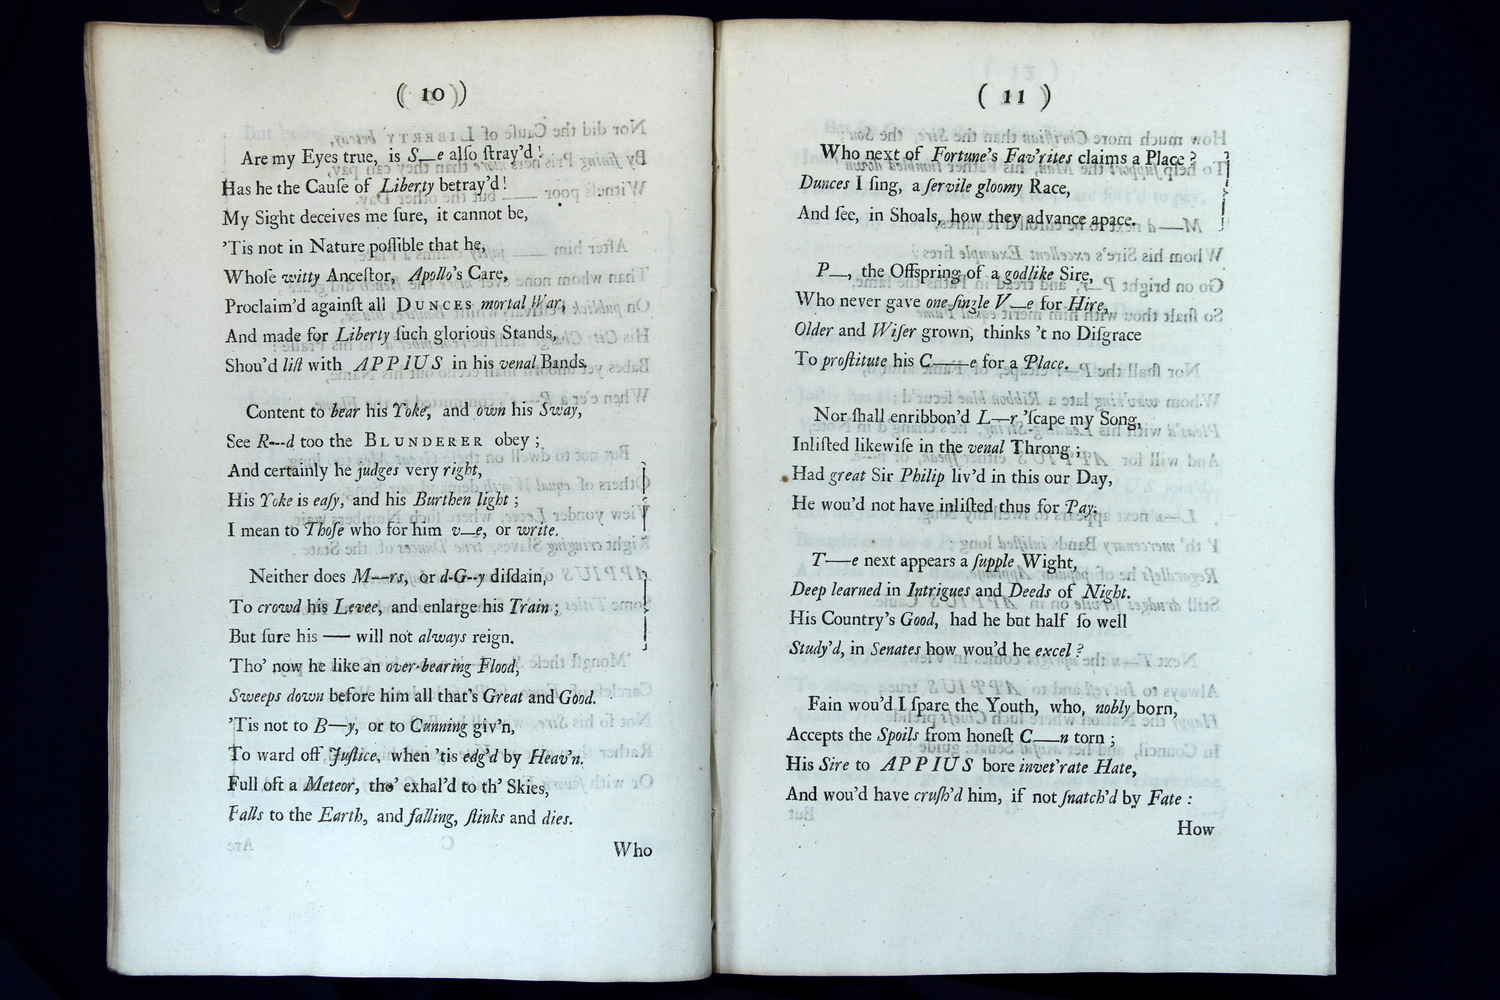 ( 10 )
Are my Eyes true, is S—e alſo ſtray'd!
Has he the Cauſe of Liberty betray'd!
My Sight deceives me ſure, it cannot be,
'Tis not in Nature poſſible that he,
Whoſe witty Anceſtor, Apollo's Care,
Proclaim'd againſt all DUNCES mortal War,
And made for Liberty ſuch glorious Stands,
Shou'd liſt with APPIUS in his venal Bands.
Content to bear his Yoke, and own his Sway,
See R---d too the BLUNDERER obey;
And certainly he judges very right,
His Yoke is eaſy, and his Burthen light;
I mean to Thoſe who for him v—e, or write.
Neither does M---rs, or d-G--y diſdain,
To crowd his Levee, and enlarge his Train;
But ſure his — will not always reign.
Tho' now he like an over-bearing Flood,
Sweeps down before him all that's Great and Good.
'Tis not to B—y, or to Cunning giv'n,
To ward off Juſtice, when 'tis edg'd by Heav'n.
Full oft a Meteor, tho' exhal'd to th' Skies,
Falls to the Earth, and falling, ſtinks and dies.
Who
( 11 )
Who next of Fortune's Fav'rites claims a Place?
Dunces I ſing, a ſervile gloomy Race,
And ſee, in Shoals, how they advance apace.
P—, the Offspring of a godlike Sire,
Who never gave one ſingle V—e for Hire,
Older and Wiſer grown, thinks 't no Diſgrace
To proſtitute his C——e for a Place.
Nor ſhall enribbon'd L—r 'ſcape my Song,
Inliſted likewiſe in the venal Throng;
Had great Sir Philip liv'd in this our Day,
He wou'd not have inliſted thus for Pay.
T—e next appears a ſupple Wight,
Deep learned in Intrigues and Deeds of Night.
His Country's Good, had he but half ſo well
Study'd, in Senates how wou'd he excel?
Fain wou'd I ſpare the Youth, who, nobly born,
Accepts the Spoils from honeſt C——n torn;
His Sire to APPIUS bore invet'rate Hate,
And wou'd have cruſh'd him, if not ſnatch'd by Fate:
How